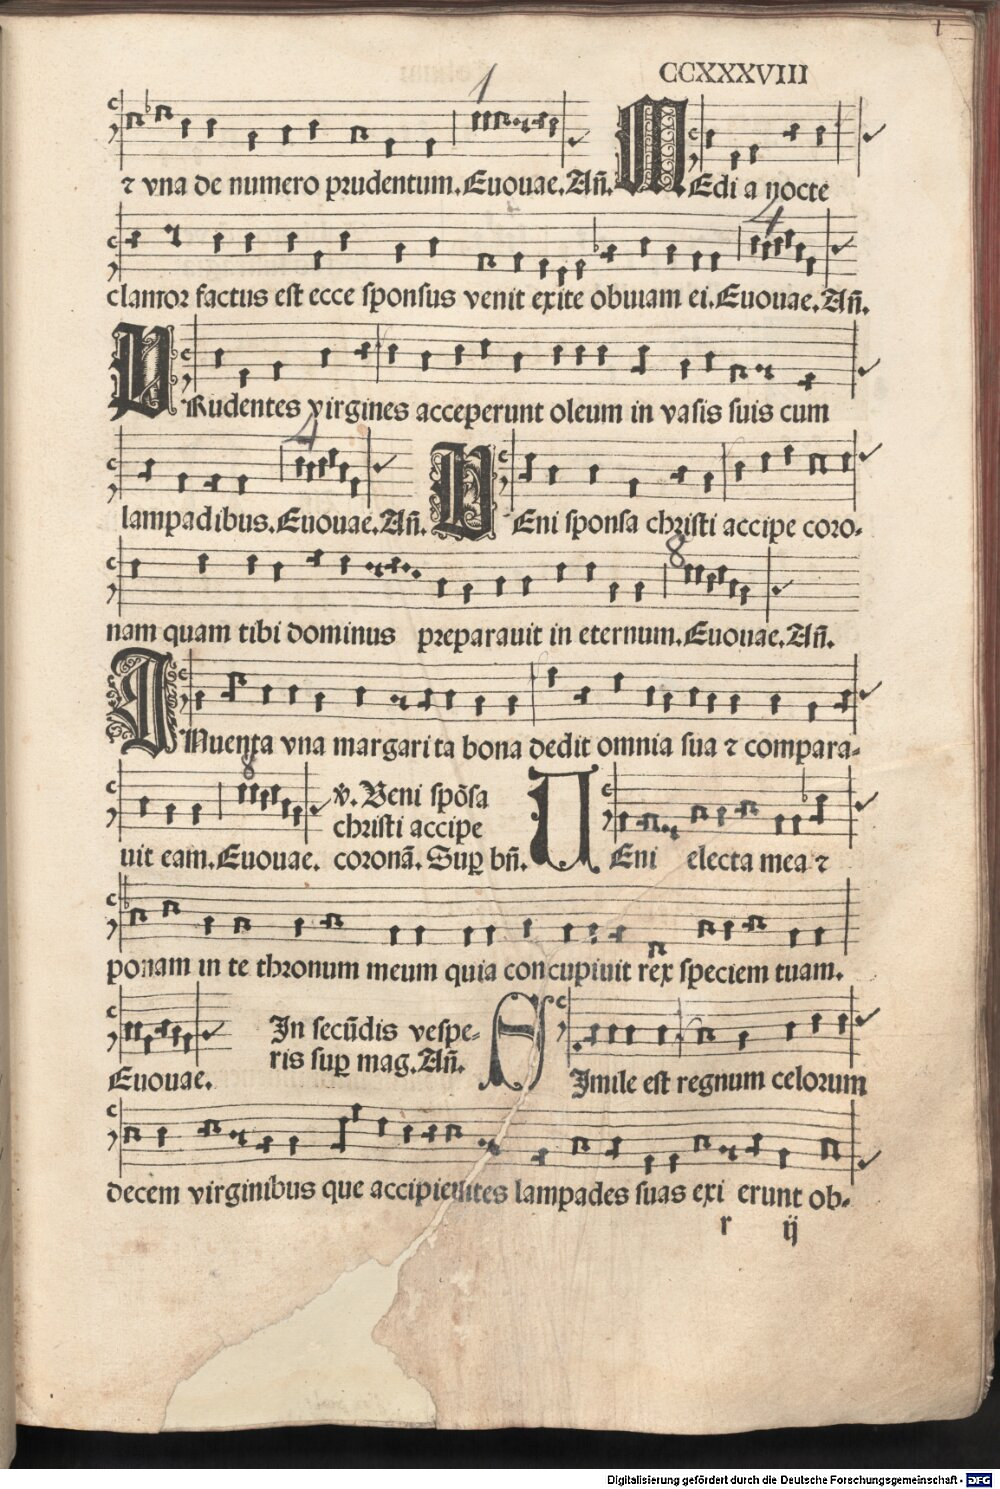 CCXXXVIII
1
⁊ vna de numero prudentum. Euouae. Añ. MEdi a nocte
4
clamor factus est ecce sponsus venit exite obuiam ei. Euouae. Añ.
PRudentes virgines acceperunt oleum in vasis suis cum
4
lampadibus. Euouae. Añ. VEni sponsa christi accipe coro-
8
nam quam tibi dominus preparauit in eternum. Euouae. Añ.
INuenta vna margarita bona dedit omnia sua ⁊ compara-
8
uit eam. Euouae. v̄. Veni spōsa
christi accipe
coronā. Sup bn̄. VEni electa mea ⁊
ponam in te thronum meum quia concupiuit rex speciem tuam.
Euouae. In secūdis vespe-
ris sup mag. Añ. SImile est regnum celorum
decem virginibus que accipientes lampades suas exi erunt ob-
r ij
Digitalisierung gefördert durch die Deutsche Forschungsgemeinschaft - DFG